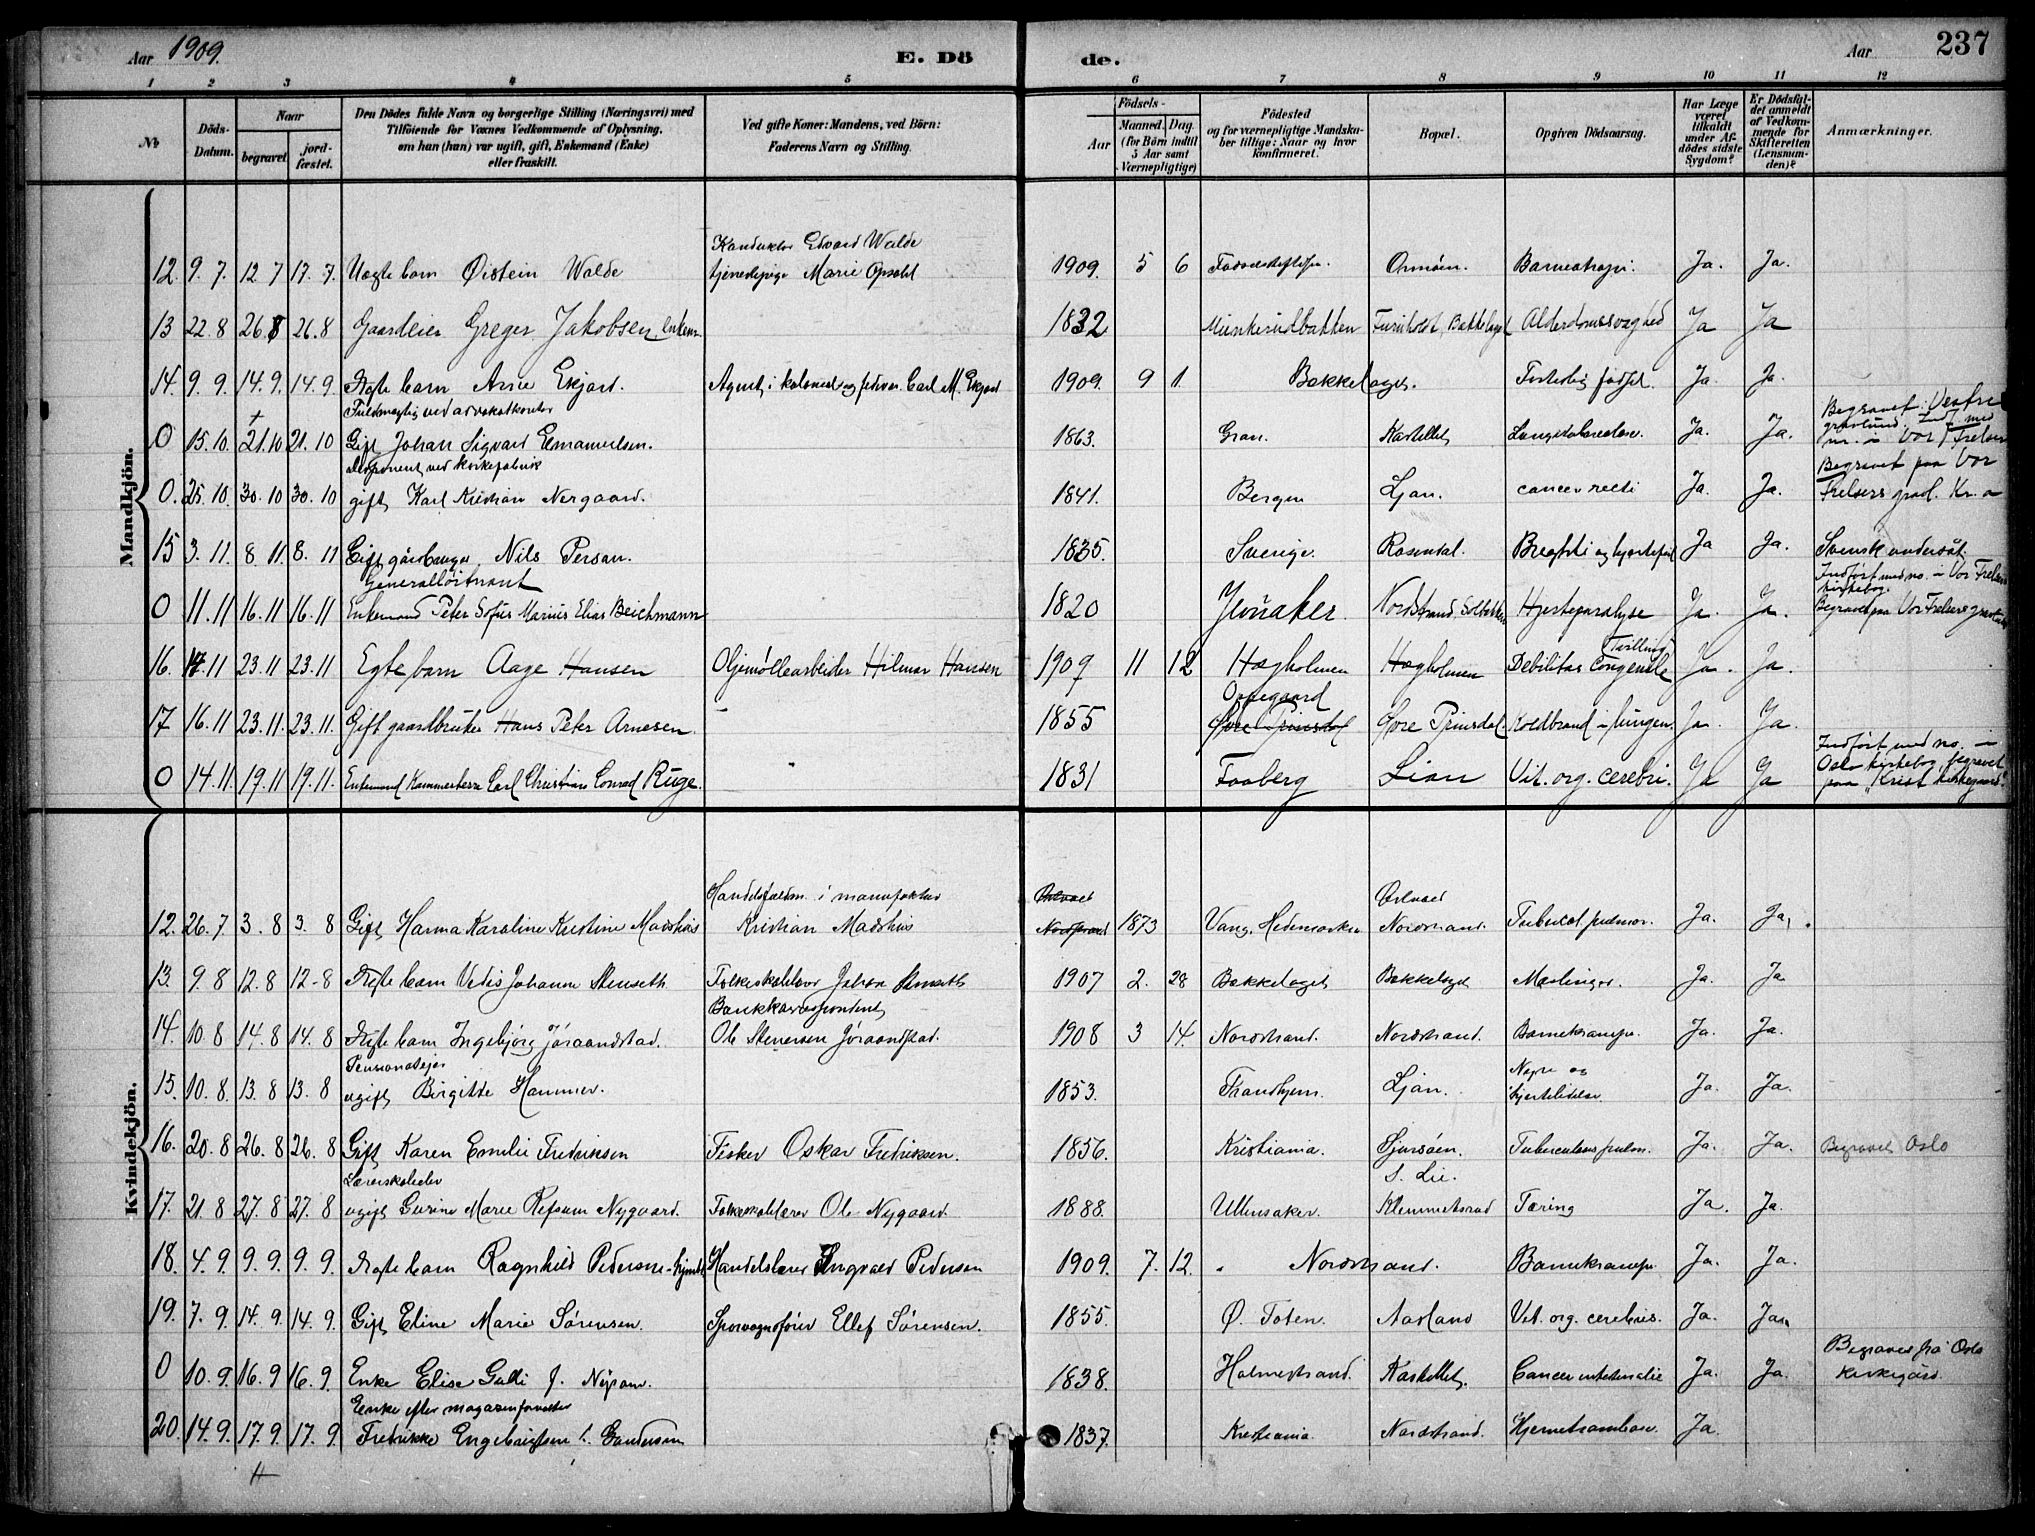 Aar 1909. E. Dö de. Aar 237
1 2 3 4 5 6 7 8 9 10 11 12
No Döds-Datum. Naar begravet. jordfæstet. Den Dödes fulde Navn og borgerlige Stilling (Næringsvei) med Tilföiende for Voxnes Vedkommende af Oplysning, om han (hun) var ugift, gift, Enkemand (Enke) eller fraskilt. Ved gifte Koner: Mandens, ved Börn: Faderens Navn og Stilling. Födsels- Aar Maaned. Dag. (for Börn indtil 5 Aar samt Værnepligtige) Födested og for værnepligtige Mandskaber tillige: Naar og hvor konfirmeret. Bopæl. Opgiven Dödsaarsag. Har Læge været tilkaldt under Afdödes sidste Sygdom? Er Dödsfaldet anmeldt af Vedkommende for Skifteretten (Lensmanden)? Anmærkninger.
Mandkjön.
Konduktør Edvard Walde
12. 9. 7. 12 7 17. 7. Uægte barn Øistein Walde tjenestepige Marie Opsahl 1909. 5 6 Ormöen. Ja. Ja.
13 22. 8 26. 8 26. 8 Gaardeier Greger Jakobsen, enkem. 1832 Munkerudbakken Furuholdt, Bækkelaget Alderdomssvaghed Ja Ja
14. 9. 9. 14. 9. 14. 9. Ægte barn Arne Ekjord. Agent i kolonial og fedvar. Carl M. Ekjord 1909. 9 1. Bækkelaget. For tidlig fødsel. Ja. Ja.
Fuldmægtig ved advokatkontor
0 15. 10. 21. 10 21. 10 Gift Johan Sigvard Emanuelsen. 1863. Gran. Kastellet Ja. Ja. Begravet: Vestre gravlund. Indf. med nr. i Vor Frelser
Disponent ved korkefabrik
0. 25. 10. 30. 10 30. 10 gift Karl Kristian Nergaard. 1841. Bergen Ljan. cancer recti Ja. Ja. Begravet paa Vor Frelsers gravl. Kr. a
15 3. 11. 8. 11 8. 11 Gift gårdbruger Nils Person. 1835. Sverige. Rosendal. Ja Ja. Svensk undersåt.
Generalløitnant
0 11. 11 16. 11 16. 11 Enkemand Peter Sofus Marius Elias Beichmann 1820 Jevnaker. Nordstrand, Solbakken Hjerteparalyse Ja. Ja. Indført med no. i Vor Frelsers kirkebog. Begravet paa Vor Frelsers gravlund
16. 17. 11 23. 11 23. 11 Egte barn Aage Hansen Oljemøllearbeider Hilmar Hansen 1909 11 12 Hagholmen Hagholmen Debilitas congenita Tvilling Ja. Ja.
17 16. 11 23. 11. 23. 11. Gift gaardbruker Hans Peter Arnesen. 1855 Oppegaard Øvre Prinsdal Øvre Prinsdal. Koldbrand i lungen. Ja. Ja.
0 14. 11 19. 11 19. 11. Enkemand Kammerherre Carl Christian Conrad Ruge. 1831 Faaberg Lian Vit. org. cerebri. Ja Ja Indført med no. i Oslo kirkebog, begravet paa "Krist kirkegaard."
Kvindekjön.
Handelsfuldm. i manufaktur
12. 26. 7 3. 8 3. 8 Gift Hanna Karoline Kristine Madshus Kristian Madshus Nordstrand 1873 Vang, Hedemarken Nordstrand. Tubercul. pulmon. Ja. Ja.
13. 9. 8 12. 8 12-8 Ægte barn Vedis Johanne Stenseth Folkeskolelærer Johan Stenseth 1907 2. 28 Bækkelaget Bækkelaget Mæslinger. Ja. Ja
Bankkorrespondent
14. 10 8 14. 8 14. 8 Ægte barn Ingebjørg Jøraandstad. Ole Stenersen Jøraandstad. 1908 3 14. Nordstrand. Nordstrand. Barnekrampe. Ja. Ja.
15. 10. 8. 13. 8 13. 8 ugift Birgitte Hammer. 1853. Trondhjem. Ljan. Nyre og hjertelidelse. Ja. Ja.
16. 20. 8 26. 8 26. 8 Gift Karen Emilie Fredriksen Fisker Oskar Fredriksen. 1856. Kristiania. Gjersøen. Tuberculous pulm. Ja. Ja. Begravet Oslo
17. 21. 8 27. 8 27. 8 ugift Gurine Marie Refsum Nygaard. Folkeskolelærer Ole Nygaard. 1888. Ullensaker. S. Lie. Klemmetsrud Tæring Ja. Ja.
18. 4. 9. 9. 9. 9. 9 Ægte barn Ragnhild Pedersen Handelslærer Ingvald Pedersen 1909. 7. 12. Nordstrand. Barnekrampe Ja. Ja.
19. 7. 9. 14. 9 14. 9 Gift Eline Marie Sørensen. Sporvognsfører Ellef Sørensen. 1855. Ø. Toten. Vit. org. cerebris. Ja. Ja.
0 10. 9. 16. 9 16. 9 Enke Elise Galli f. 1838. Holmestrand. Kastellet. Cancer intestinalis Ja. Ja. Begravet på Oslo kirkegård.
Enke efter magasinforvalter
20. 14. 9. 17. 9 17. 9 Fredrikke Engebrigtsen f. Gundersen 1837. Kristiania Nordstrand. Ja.